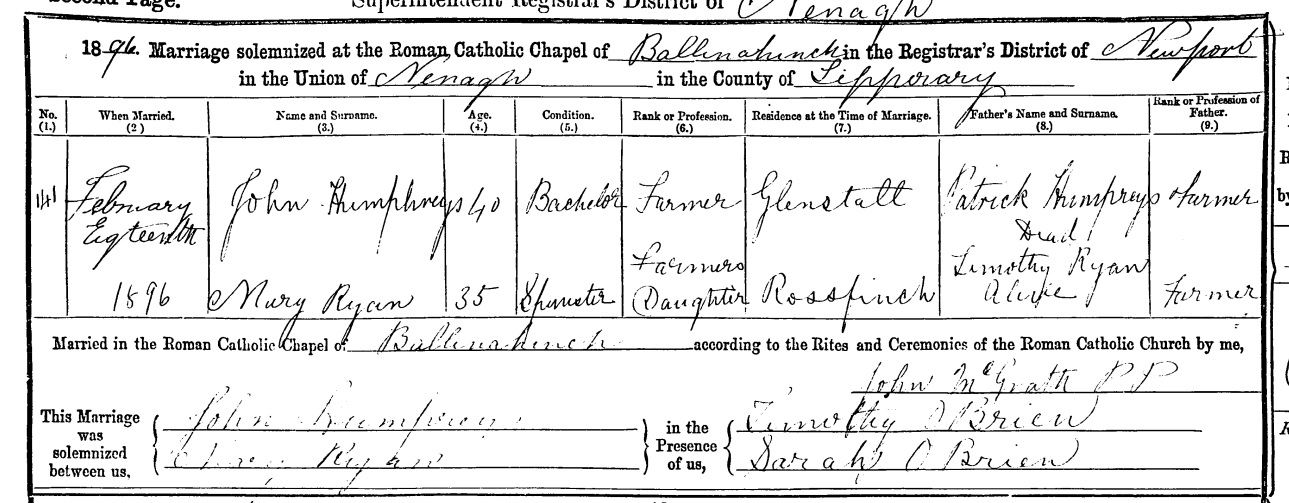 Second Page.
Superintendent Registrar's District of Nenagh
1896. Marriage solemnized at the Roman Catholic Chapel of Ballinahinch in the Registrar's District of Newport
in the Union of Nenagh in the County of Tipperary
No. (1.) When Married. (2) Name and Surname. (3.) Age. (4.) Condition. (5.) Rank or Profession. (6.) Residence at the Time of Marriage. (7.) Father's Name and Surname. (8.) Rank or Profession of Father. (9.)
141 February Eigteenth 1896
John Humphreys 40 Bachelor Farmer Glenstall Patrick Humpreys Dead Farmer
Mary Ryan 35 Spinster Farmers Daughter Rossfinch Timothy Ryan Alive Farmer
Married in the Roman Catholic Chapel of Ballinahinch according to the Rites and Ceremonies of the Roman Catholic Church by me,
John McGrath PP
This Marriage was solemnized between us, John Humpreys
Mary Ryan
in the Presence of us, Timothy O Brien
Sarah O Brien